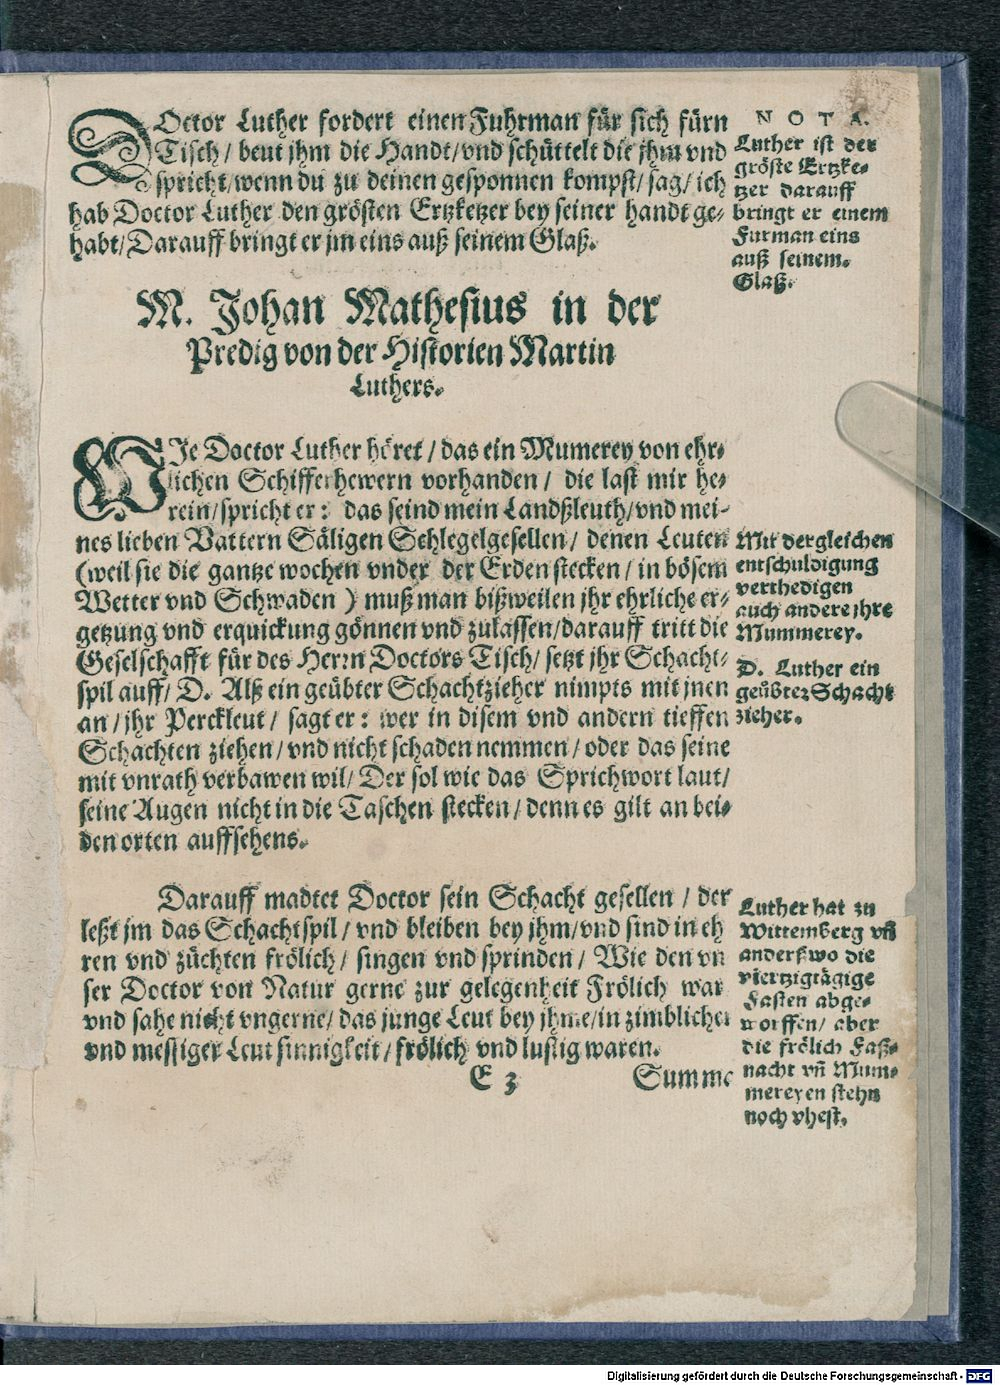 DOctor Luther fordert einen Fuhrman für sich fürn
Tisch/ beut jhm die Handt/vnd schüttelt die jhm vnd
spricht/wenn du zu deinen gesponnen kompst/sag/ ich
hab Doctor Luther den grösten Ertzketzer bey seiner handt ge-
habt/Darauff bringt er jm eins auß seinem Glaß.
N O T A.
Luther ist der
gröste Ertzke-
tzer darauff
bringt er einem
Furman eins
auß seinem.
Glaß.
M. Johan Mathesius in der
Predig von der Historien Martin
Luthers.
WJe Doctor Luther höret / das ein Mumerey von ehr-
lichen Schifferhewern vorhanden / die last mir he-
rein/spricht er: das seind mein Landßleuth/vnd mei-
nes lieben Vattern Säligen Schlegelgesellen / denen Leuten
(weil sie die gantze wochen vnder der Erden stecken / in bösem
Wetter vnd Schwaden ) muß man bißweilen jhr ehrliche er-
getzung vnd erquickung gönnen vnd zulassen/darauff tritt die
Geselschafft für des Herrn Doctors Tisch/ setzt jhr Schacht-
spil auff/ D. Alß ein geübter Schachtzieher nimpts mit jnen
an /jhr Perckleut / sagt er: wer in disem vnd andern tieffen
Schachten ziehen/ vnd nicht schaden nemmen/ oder das seine
mit vnrath verbawen wil/ Der sol wie das Sprichwort laut/
seine Augen nicht in die Taschen stecken / denn es gilt an bei-
den orten auffsehens.
Mit dergleichen
entschuldigung
verthedigen
auch andere jhre
Mummerey.
D. Luther ein
geübter Schacht
zieher.
Darauff madtet Doctor sein Schacht gesellen / der
leßt jm das Schachtspil/ vnd bleiben bey jhm/vnd sind in eh
ren vnd züchten frölich/ singen vnd sprinden/ Wie den vn
ser Doctor von Natur gerne zur gelegenheit Frölich war
vnd sahe nicht vngerne/ das junge Leut bey jhme/in zimblicher
vnd messiger Leutsinnigkeit/ frölich vnd lustig waren.
Luther hat zu
Wittemberg vñ
anderßwo die
viertzigtägige
Fasten abge-
worffen/ aber
die frölich Faß-
nacht vñ Mum-
mereyen stehn
noch vhest.
E 3 Summe
Digitalisierung gefördert durch die Deutsche Forschungsgemeinschaft - DFG